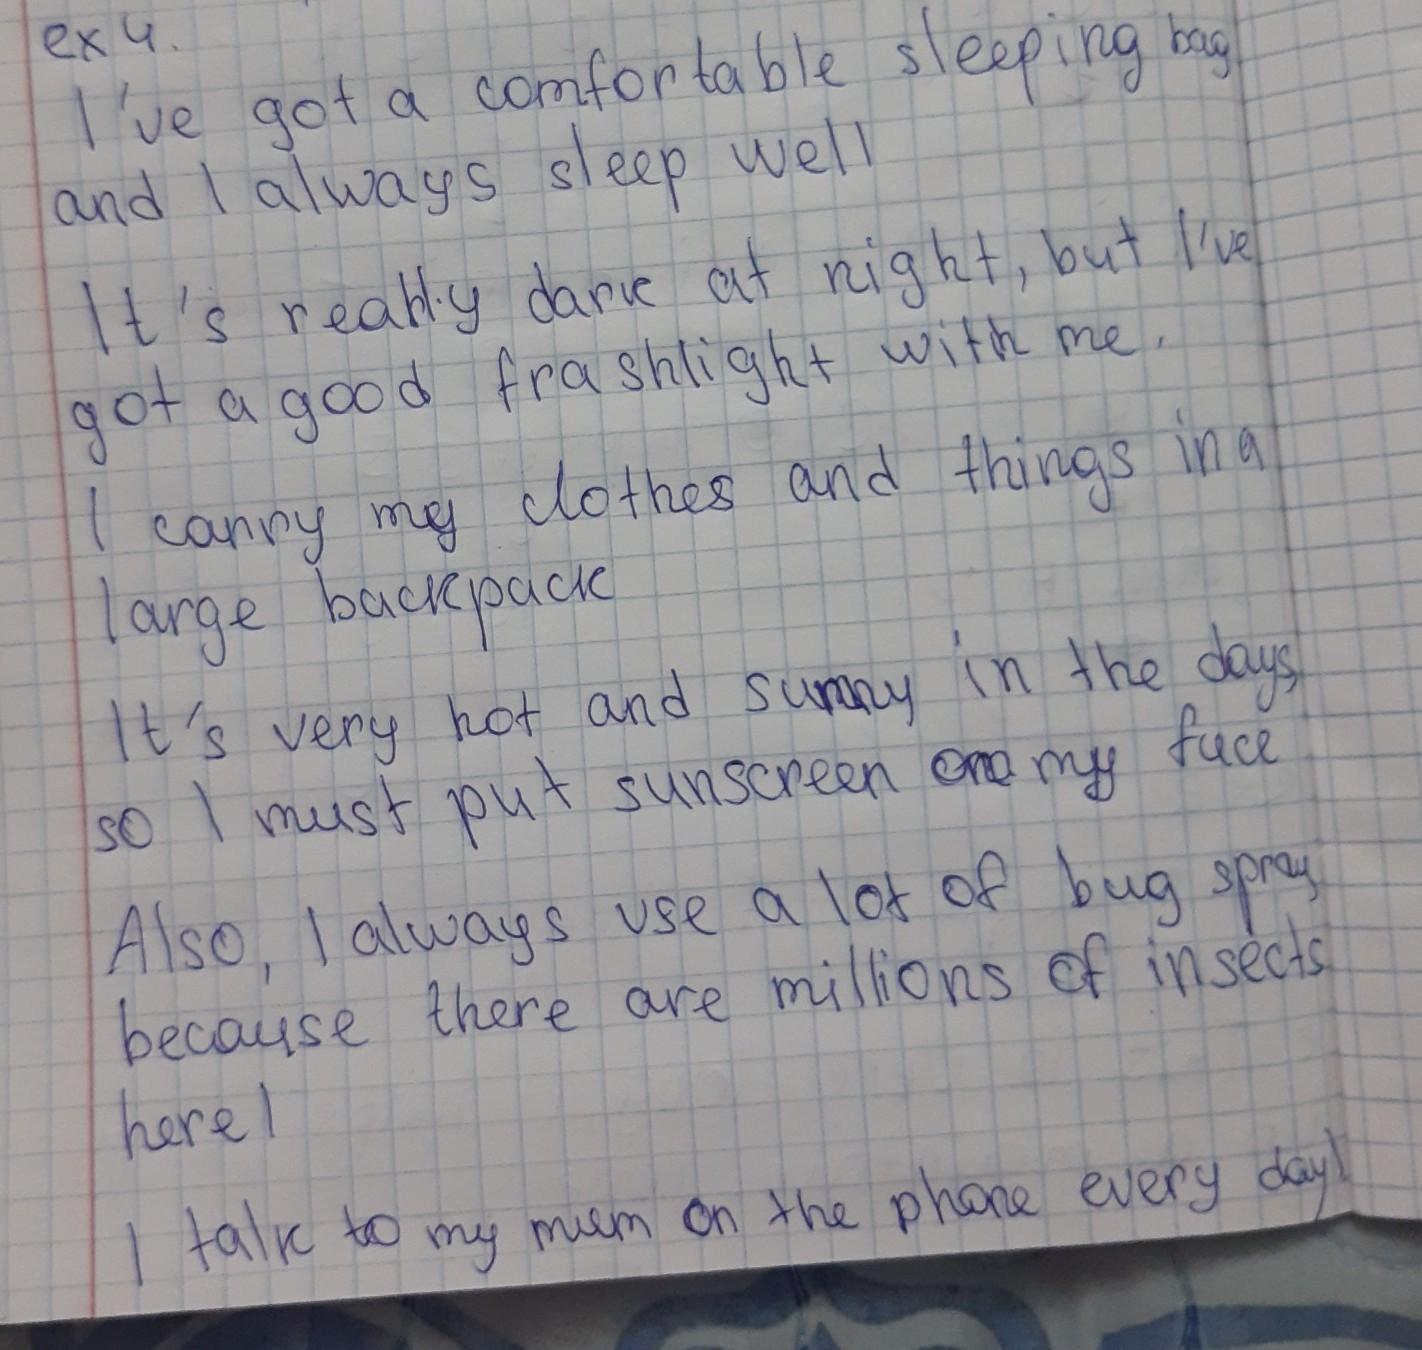 ex 4.
I've got a comfortable sleeping bag
and I always sleep well
It's really dark at night, but I've
got a good frashlight with me.
I carry my clothes and things in a
large backpack
It's very hot and sunny in the days,
so I must put sunscreen on my face
Also, I always use a lot of bug spray
because there are millions of insects
here!
I talk to my mum on the phone every day!